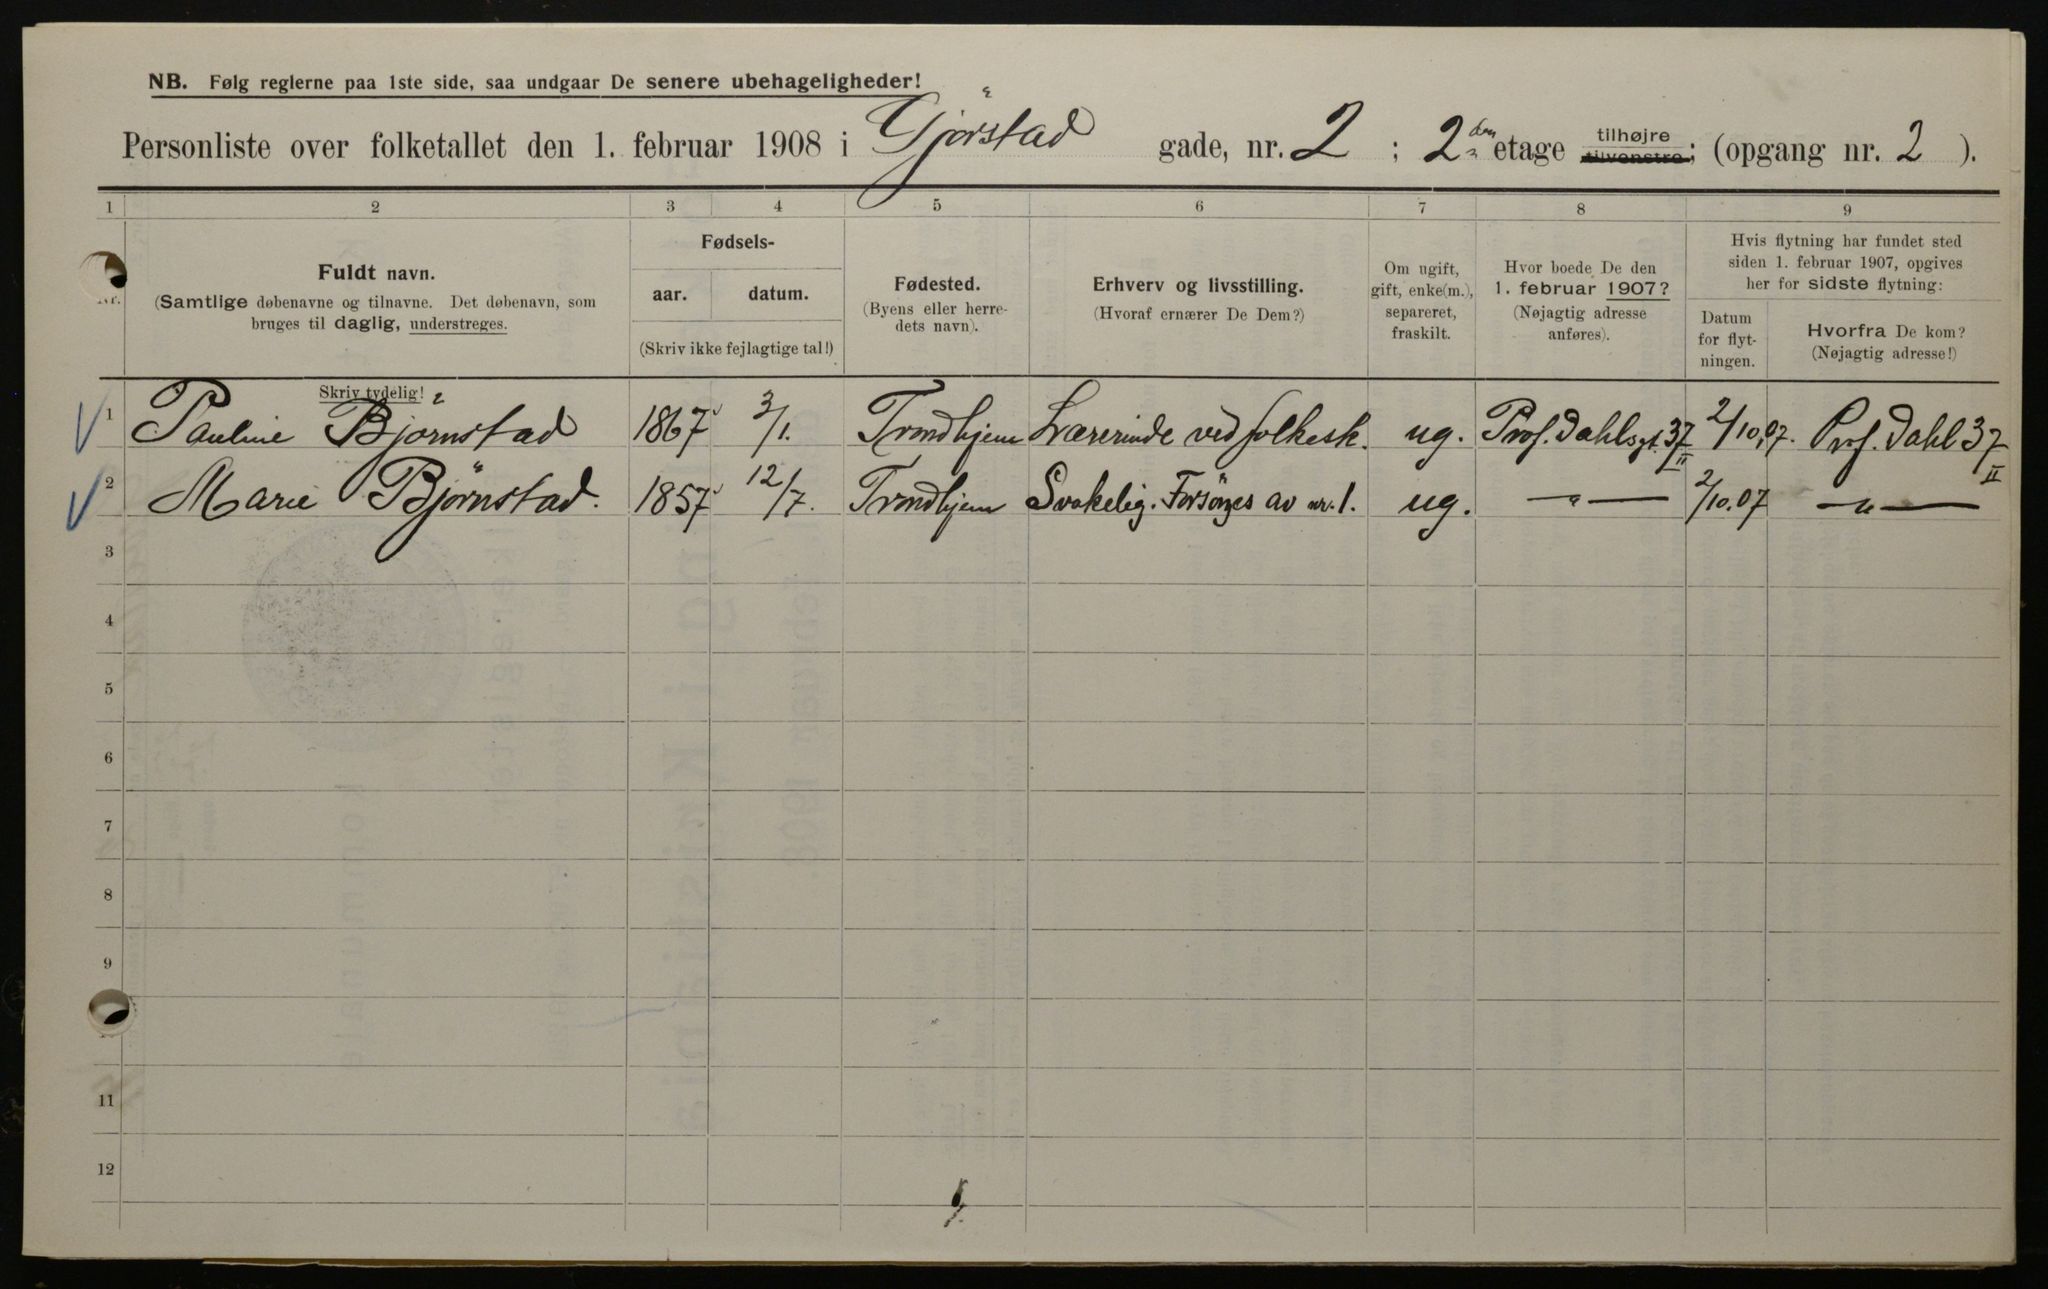 NB. Følg reglerne paa 1ste side, saa undgaar De senere ubehageligheder!
Personliste over folketallet den 1. februar 1908 i Gjörstad gade, nr. 2 ; 2den etage tilhøjre tilvenstre; (opgang nr. 2 ).
1 2 3 4 5 6 7 8 9
Nr.
Fuldt navn.
(Samtlige døbenavne og tilnavne. Det døbenavn, som
bruges til daglig, understreges.
Skriv tydelig!
Fødsels-
aar. datum.
(Skriv ikke fejlagtige tal!)
Fødested.
(Byens eller herre-
dets navn).
Erhverv og livsstilling.
(Hvoraf ernærer De Dem?)
Om ugift,
gift, enke(m.),
separeret,
fraskilt.
Hvor boede De den
1. februar 1907?
(Nøjagtig adresse
anføres).
Hvis flytning har fundet sted
siden 1. februar 1907, opgives
her for sidste flytning:
Datum
for flyt-
ningen.
Hvorfra De kom?
(Nøjagtig adresse!)
1 Pauline Björnstad 1867 3/1. Trondhjem Lærerinde ved folkesk. ug. Prof. Dahlsgt. 37 II 2/10.07. Prof. Dahl 37 II
2 Marie Björnstad. 1857 12/7. Trondhjem Svakelig. Forsörges av nr. 1. ug. —„— 2/10.07 —„—
3
4
5
6
7
8
9
11
12